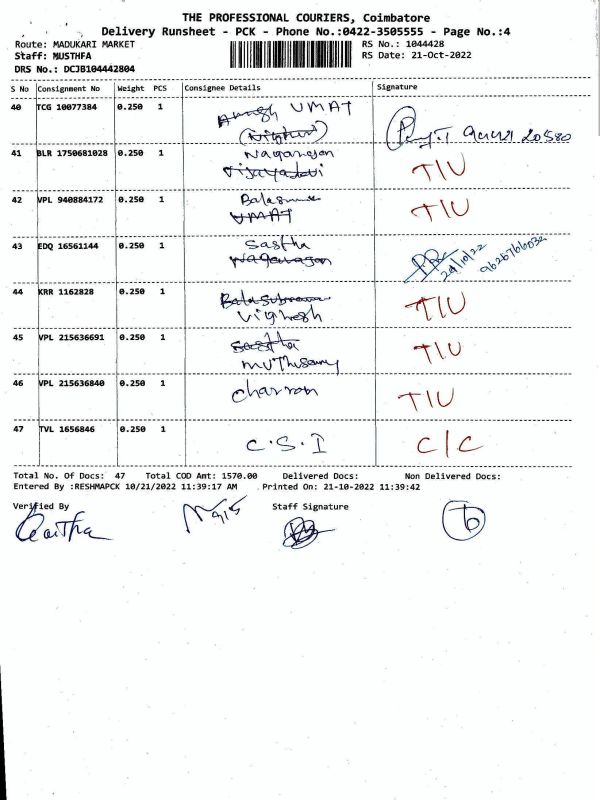 THE PROFESSIONAL COURIERS, Coimbatore
Delivery Runsheet - PCK - Phone No.:0422-3505555 - Page No.:4
Route: MADUKARI MARKET RS No.: 1044428
Staff: MUSTHFA RS Date: 21-Oct-2022
DRS No.: DCJB104442804
S No Consignment No Weight PCS Consignee Details Signature
40 TCG 10077384 0.250 1 UMAT
41 BLR 1750681028 0.250 1 Naganajan T/U
Vijayadevi
42 VPL 940884172 0.250 1 T/U
UMAT
43 EDQ 16561144 0.250 1 Sastha
24/10/22
44 KRR 1162828 0.250 1 T/U
Vighesh
45 VPL 215636691 0.250 1 Sastha T/U
Muthusamy
46 VPL 215636840 0.250 1 Charran T/U
47 TVL 1656846 0.250 1 C.S.I C/C
Total No. Of Docs: 47 Total COD Amt: 1570.00 Delivered Docs: Non Delivered Docs:
Entered By :RESHMAPCK 10/21/2022 11:39:17 AM Printed On: 21-10-2022 11:39:42
Verified By Staff Signature